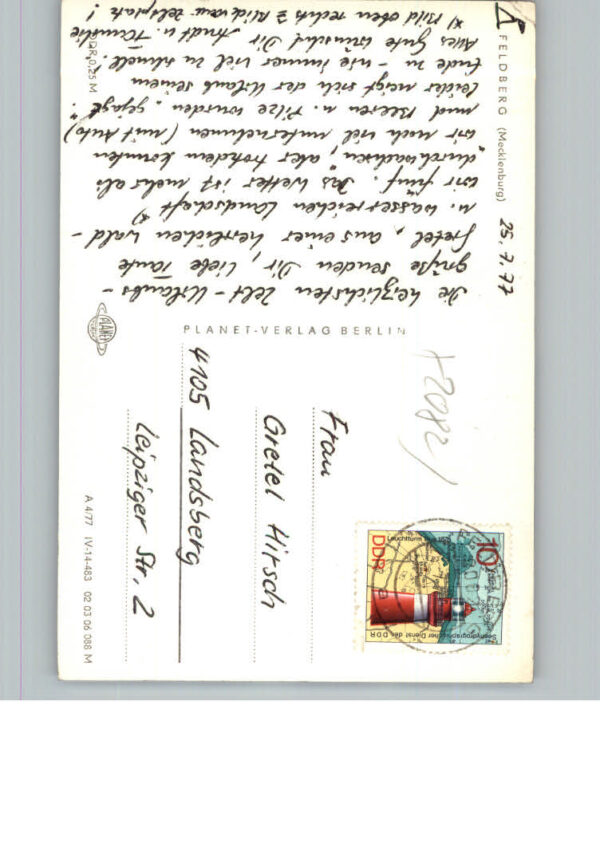 FELDBERG (Mecklenburg)
25.7.77
Die herzlichsten Zelt-Urlaubs-
grüße senden Dir, liebe Tante
Gretel, aus einer herrlichen Wald-
u. wasserreichen Landschaft x)
wir fünf. Das Wetter ist mehr als
"durchwachsen", aber trotzdem konnten
wir noch viel unternehmen (mit Auto)
und Beeren u. Pilze wurden "gejagt".
Leider neigt sich der Urlaub seinem
Ende zu - wie immer viel zu schnell!
Alles Gute wünscht Dir Arndt u. Familie
x) Bild oben rechts Blick vom Zeltplatz!
DDR 0,25 M
PLANET-VERLAG BERLIN
PLANET
Frau
Gretel Hirsch
4105 Landsberg
Leipziger Str. 2
A 4/77 IV-14-483 02 03 06 088 M
10
DDR
Seehydrographischer Dienst der DDR